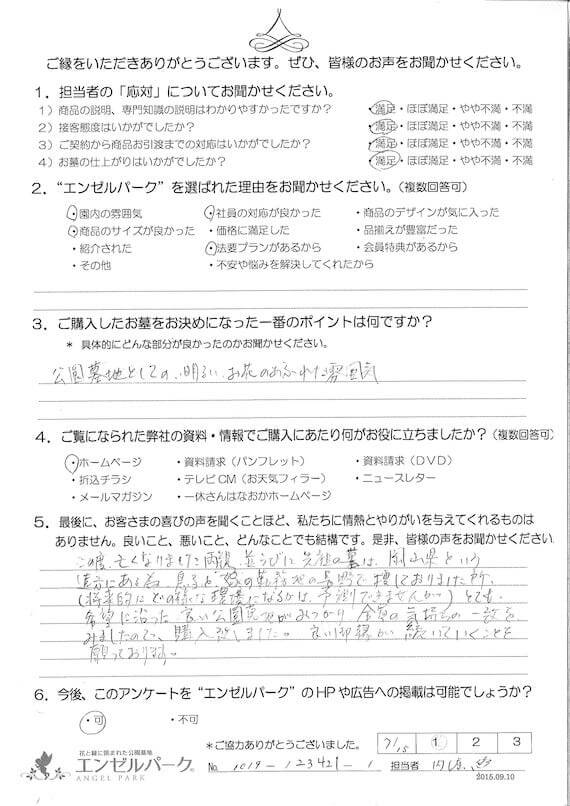 ご縁をいただきありがとうございます。ぜひ、皆様のお声をお聞かせください。
1．担当者の「応対」についてお聞かせください。
1）商品の説明、専門知識の説明はわかりやすかったですか？ ・満足・ほぼ満足・やや不満・不満
2）接客態度はいかがでしたか？ ・満足・ほぼ満足・やや不満・不満
3）ご契約から商品お引渡までの対応はいかがでしたか？ ・満足・ほぼ満足・やや不満・不満
4）お墓の仕上がりはいかがでしたか？ ・満足・ほぼ満足・やや不満・不満
2．“エンゼルパーク”を選ばれた理由をお聞かせください。（複数回答可）
・園内の雰囲気 ・社員の対応が良かった ・商品のデザインが気に入った
・商品のサイズが良かった ・価格に満足した ・品揃えが豊富だった
・紹介された ・法要プランがあるから ・会員特典があるから
・その他 ・不安や悩みを解決してくれたから
3．ご購入したお墓をお決めになった一番のポイントは何ですか？
＊ 具体的にどんな部分が良かったのかお聞かせください。
公園墓地としての、明るい、お花のあふれた雰囲気
4．ご覧になられた弊社の資料・情報でご購入にあたり何がお役に立ちましたか？（複数回答可）
・ホームページ ・資料請求（パンフレット） ・資料請求（DVD）
・折込チラシ ・テレビCM（お天気フィラー） ・ニュースレター
・メールマガジン ・一休さんはなおかホームページ
5．最後に、お客さまの喜びの声を聞くことほど、私たちに情熱とやりがいを与えてくれるものは
ありません。良いこと、悪いこと、どんなことでも結構です。是非、皆様の声をお聞かせください
この度、亡くなりました両親、並びに先祖の墓は、岡山県という
遠方にある為、息子と娘の勤務地の長野で捜しておりました所、
（将来的にどの様な環境になるかは、予測できませんが）とても
希望に沿った良い公園墓地がみつかり 全員の気持ちの一致を
みましたので、購入致しました。良い御縁が続いていくことを
願っております。
6．今後、このアンケートを“エンゼルパーク”のHPや広告への掲載は可能でしょうか？
・可 ・不可
花と緑に囲まれた公園墓地
エンゼルパーク®
ANGEL PARK
＊ご協力ありがとうございました。 7/15 1 2 3
No 1019-123421-1 担当者
2015.09.10